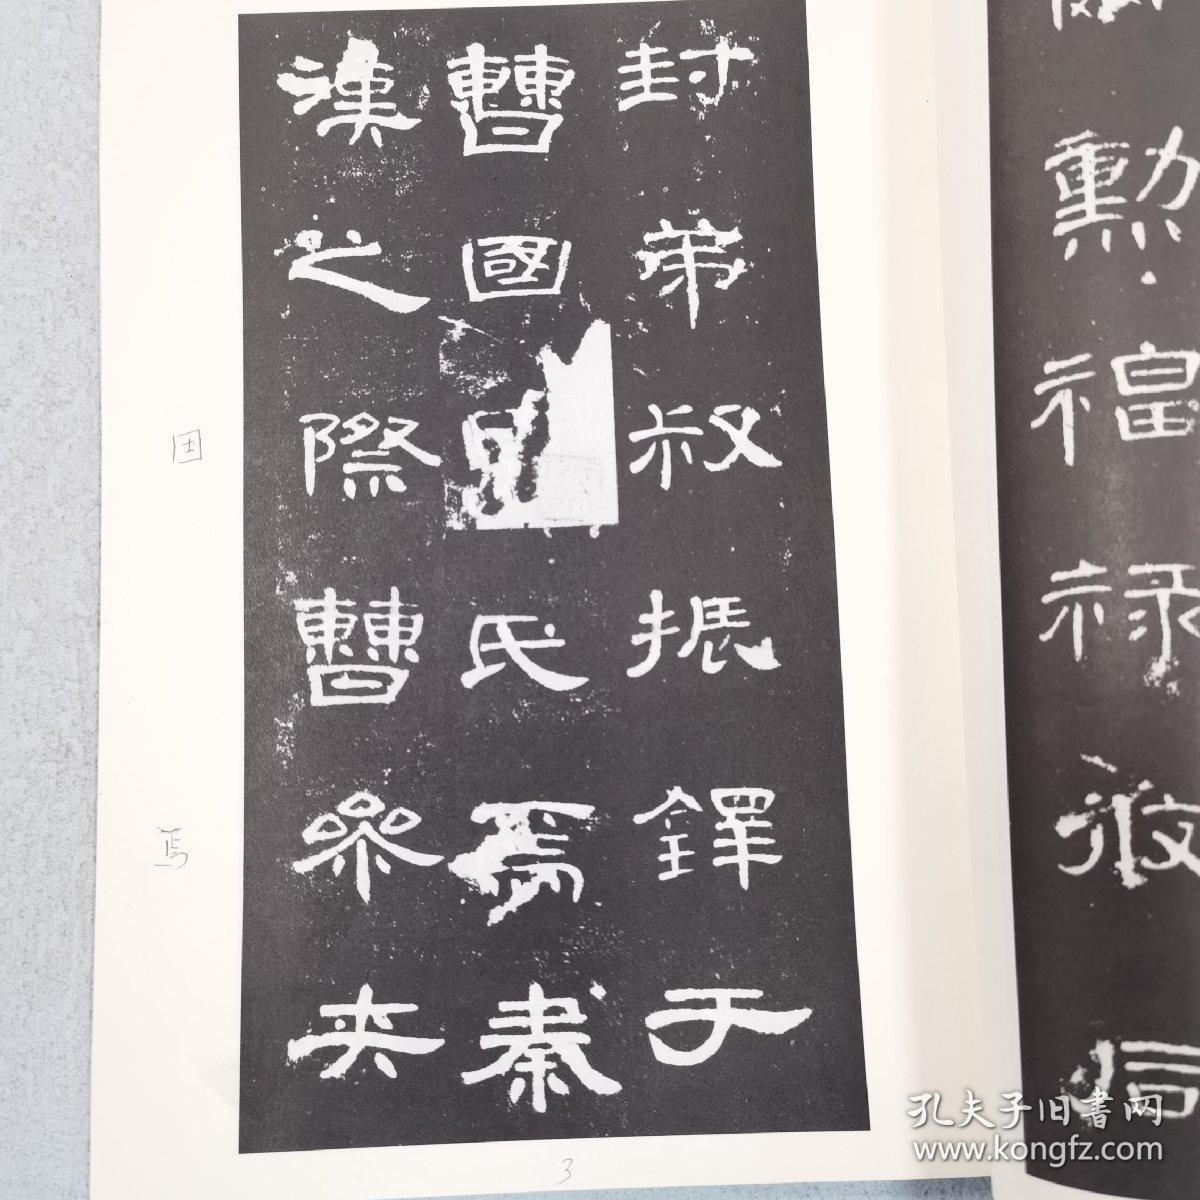 勲福祿攸同
封弟叔振鐸于
曹國
氏焉秦
漢之際曹參夾
焉
3
孔夫子旧書网
www.kongfz.com